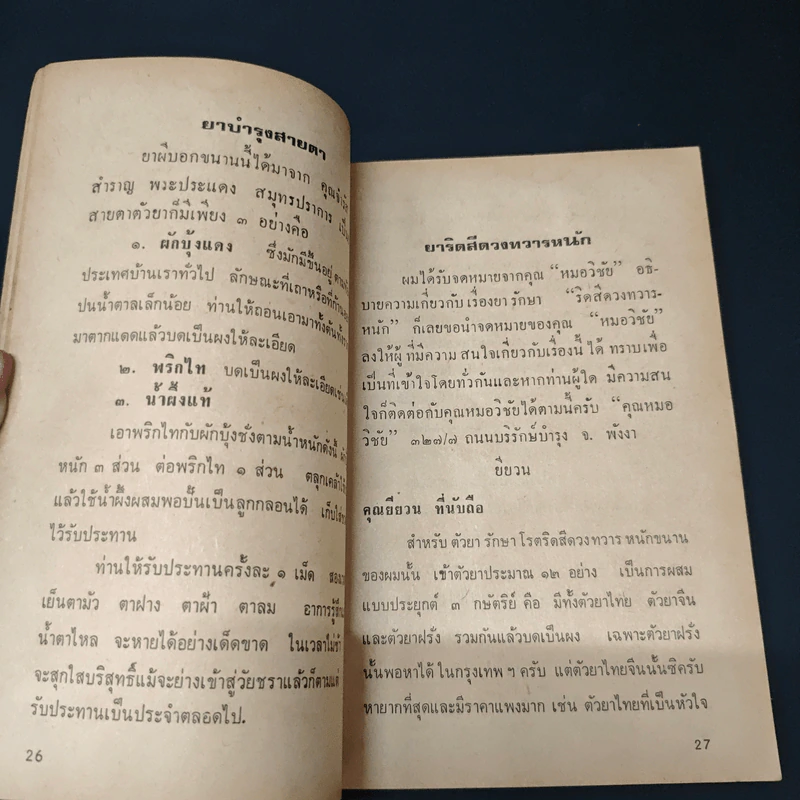 ยาบำรุงสายตา
ยาผีบอกขนานนี้ได้มาจาก
สำราญ พระประแดง สมุทรปราการ
สายตาตัวยาก็มีเพียง ๓ อย่างคือ
๑. ผักบุ้งแดง ซึ่งมักมีขึ้นอยู่
ประเทศบ้านเราทั่วไป ลักษณะที่เถาหรือที่ก้าน
ปนน้ำตาลเล็กน้อย ท่านให้ถอนเอามาทั้งต้นทั้ง
มาตากแดดแล้วบดเป็นผงให้ละเอียด
๒. พริกไท บดเป็นผงให้ละเอียด
๓. น้ำผึ้งแท้
เอาพริกไทกับผักบุ้งชั่งตามน้ำหนักดังนี้
หนัก ๓ ส่วน ต่อพริกไท ๑ ส่วน คลุกเคล้า
แล้วใช้น้ำผึ้งผสมพอปั้นเป็นลูกกลอนได้ เก็บ
ไว้รับประทาน
ท่านให้รับประทานครั้งละ ๑ เม็ด
เย็นตามัว ตาฝาง ตาฝ้า ตาลม อาการ
น้ำตาไหล จะหายได้อย่างเด็ดขาด ในเวลาไม่ช้า
จะสุกใสบริสุทธิ์แม้จะย่างเข้าสู่วัยชราแล้วก็ตาม
รับประทานเป็นประจำตลอดไป.
26
ยาริดสีดวงทวารหนัก
ผมได้รับจดหมายจากคุณ “หมอวิชัย” อธิ-
บายความเกี่ยวกับเรื่องยารักษา “ริดสีดวงทวาร-
หนัก” ก็เลยขอนำจดหมายของคุณ “หมอวิชัย”
ลงให้ผู้ที่มีความสนใจเกี่ยวกับเรื่องนี้ได้ทราบเพื่อ
เป็นที่เข้าใจโดยทั่วกันและหากท่านผู้ใด มีความสน
ใจก็ติดต่อกับคุณหมอวิชัยได้ตามนี้ครับ “คุณหมอ
วิชัย” ๓๒๗/๗ ถนนบริรักษ์บำรุง จ. พังงา
ยียวน
คุณยียวน ที่นับถือ
สำหรับตัวยารักษาโรคริดสีดวงทวารหนักขนาน
ของผมนั้น เข้าตัวยาประมาณ ๑๒ อย่าง เป็นการผสม
แบบประยุกต์ ๓ กษัตริย์ คือ มีทั้งตัวยาไทย ตัวยาจีน
และตัวยาฝรั่ง รวมกันแล้วบดเป็นผง เฉพาะตัวยาฝรั่ง
นั้นพอหาได้ในกรุงเทพ ฯ ครับ แต่ตัวยาไทยจีนนั้นซิครับ
หายากที่สุดและมีราคาแพงมาก เช่น ตัวยาไทยที่เป็นหัวใจ
27